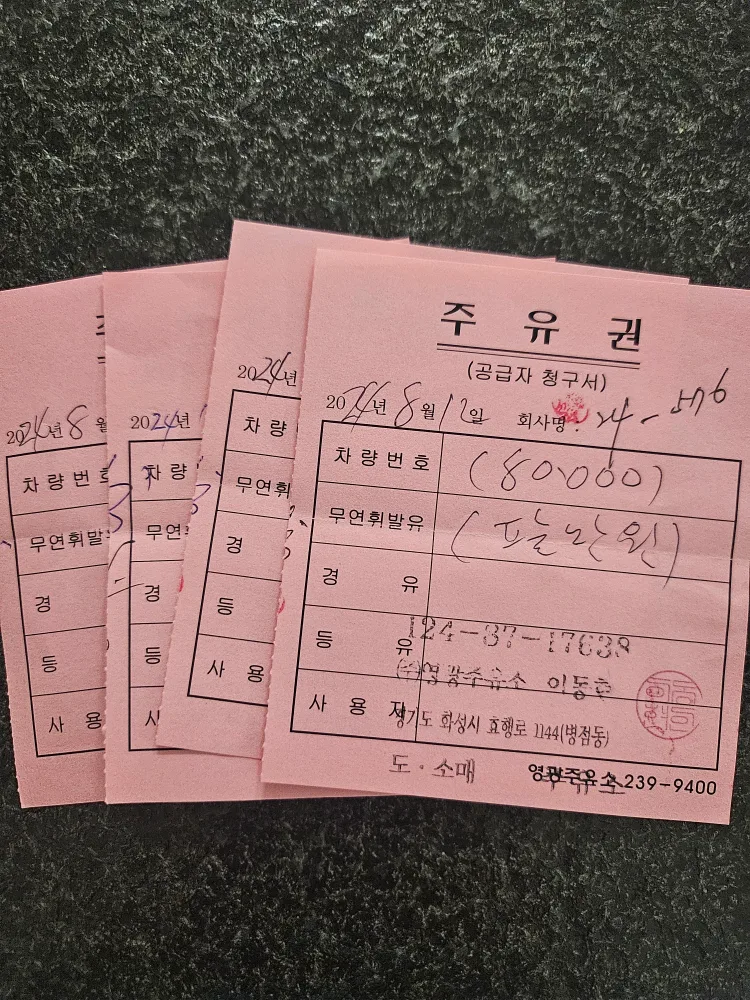 주 유 권
(공급자 청구서)
2024년 8월 12일 회사명: 24-576
차량번호 (80,000)
무연휘발유 (팔만원)
경 유
등 유
124-87-17638
(주)영광주유소 이동호
사 용 자
경기도 화성시 효행로 1144(병점동)
도·소매
영광주유소 239-9400
2024년
차량
무연휘
경
등
사 용
2024년
차량
무연
경
등
사
2024년 8월
차량번호
무연휘발
경
등
사 용